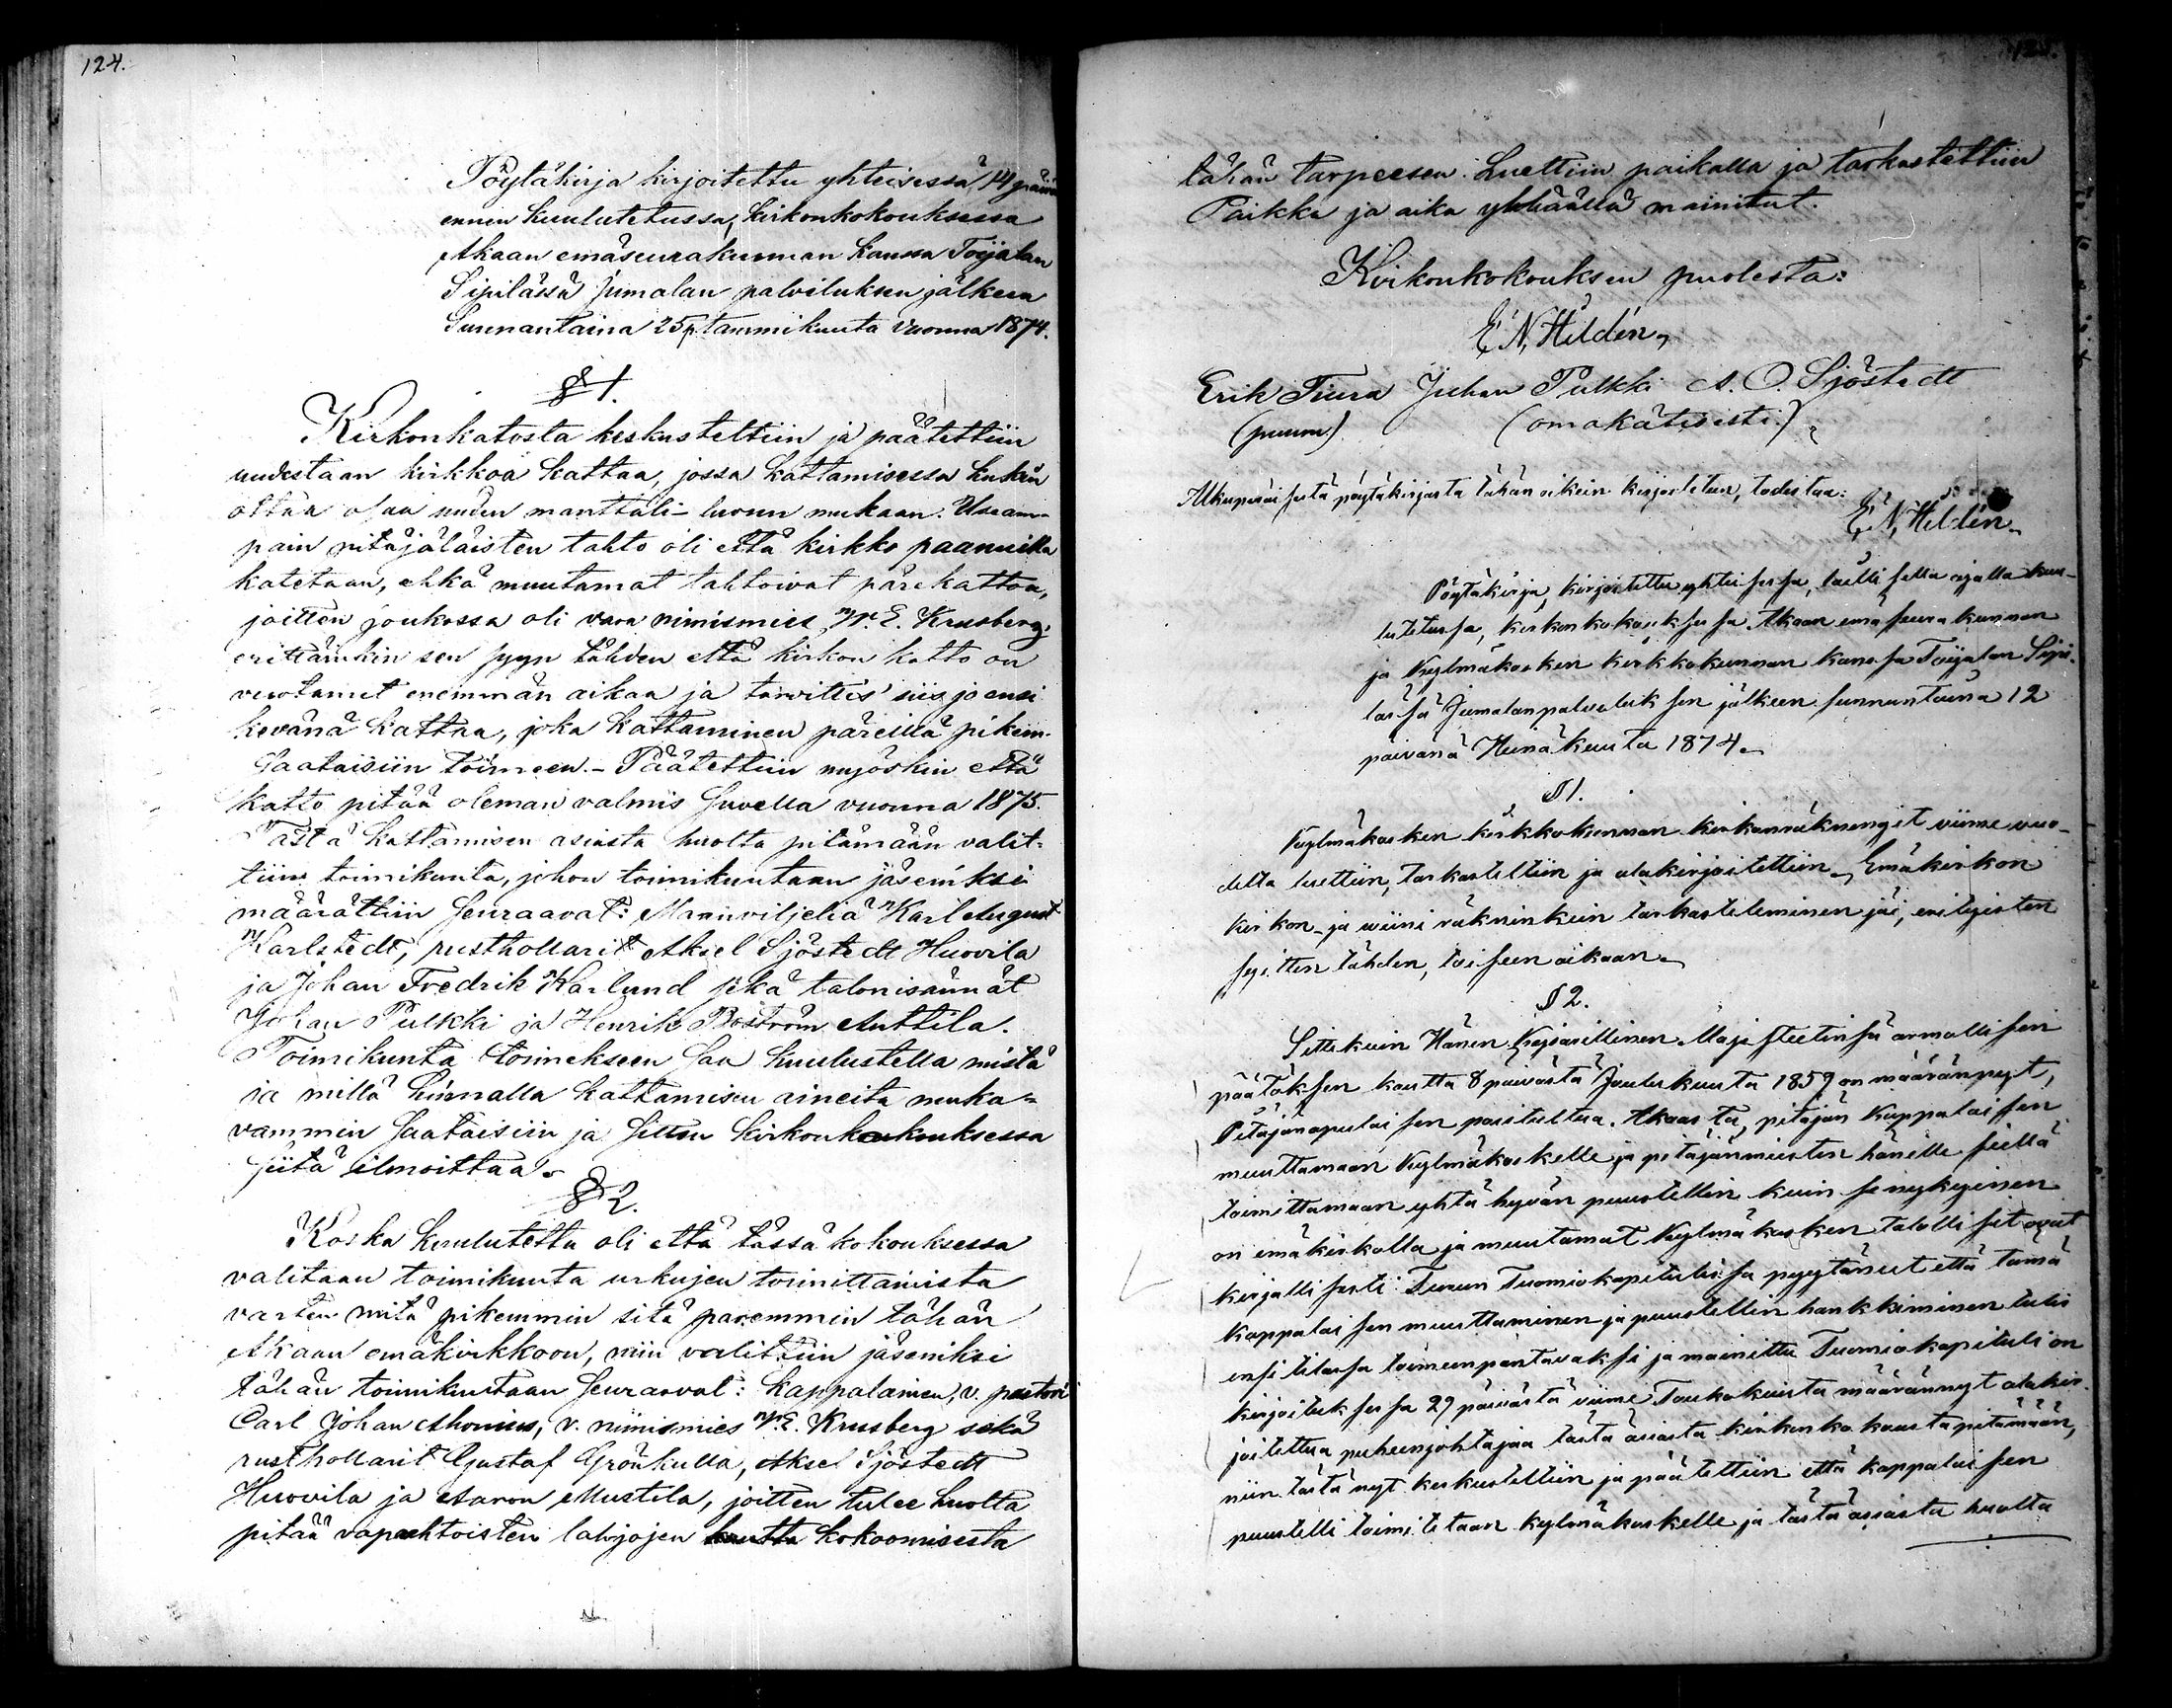 124.
Pöytäkirja kirjoitettu yhteisessä, 14 päivää
ennen kuulutetussa, kirkonkokouksessa
Akaan emäseurakunnan kanssa Toijalan
Sipilässä Jumalan palveluksen jälkeen
Sunnantaina 25 p. tammikuuta vuonna 1874.
§ 1.
Kirkonkatosta keskusteltiin ja päätettiin
uudestaan kirkkoa kattaa, jossa kattamisessa kukin
ottaa osaa uuden manttali-luvun mukaan. Useam-
pain pitäjäläisten tahto oli että kirkko paanuilla
katetaan, ehkä muutamat tahtoivat pärekattoa,
joitten joukossa oli vara nimismies W. E. Krusberg,
erittäinkin sen syyn tähden että kirkon katto on
vuotanut enemmän aikaa ja tarvittis' siis jo ensi
kevänä kattaa, joka kattaminen päreillä pikem-
Saataisiin toimeen. - Päätettiin myöskin että
katto pitää oleman valmis Suvella vuonna 1875.
Tästä kattamisen asiasta huolta pitämään valit-
tiin toimikunta, johon toimikuntaan jäseniksi
määrättiin Seuraavat: Maanviljeliä Karl August
Karlstedt, rusthollarit Aksel Sjöstedt Huovila
ja Johan Fredrik Karlund sekä talonisännät
Johan Pulkki ja Henrik Boström Anttila.
Toimikunta toimekseen Saa kuulustella mistä
ja millä hinnalla kattamisen aineita muka-
vammin Saataisiin ja Sitten kirkonkokouksessa
siitä ilmoittaa.
§ 2.
Koska kuulutettu oli että tässä kokouksessa
valitaan toimikunta urkujen toimittamista
varten mitä pikemmin sitä paremmin tähän
Akaan emäkirkkoon, niin valittiin jäseniksi
tähän toimikuntaan Seuraavat: kappalainen, v. pastori
Carl Johan Ahonius, v. nimismies W. E. Krusberg sekä
rusthollarit Gustaf Grönkulla, Aksel Sjöstedt
Huovila ja Aaron Mustila, joitten tulee huolta
pitää vapaehtoisten lahjojen kautta kokoomisesta
tähän tarpeesen. Luettiin paikalla ja tarkastettiin
Paikka ja aika ylähäällä mainitut.
Kirkonkokouksen puolesta:
E. N. Hildén,
Erik Tiura Juhan Pulkki A. O. Sjöstedt
(puum.) (omakätisesti.)
Alkuperäisestä pöytäkirjasta tähän oikein kirjoitetun, todistaa:
E. N. Hildén
Pöytäkirja, kirjoitettu yhteisessä, laillisella ajalla kuu-
lutetussa, kirkonkokouksessa Akaan emäseurakunnan
ja Kylmäkosken kirkkokunnan kanssa Toijalan Sipi-
lässä Jumalanpalveluksen jälkeen sunnuntaina 12
päivänä Heinäkuuta 1874.
§ 1.
Kylmäkosken kirkkokunnan kirkonräkningit viime vuo-
delta luettiin, tarkasteltiin ja alakirjoitettiin. Emäkirkon
kirkon- ja viini räkninkein tarkasteleminen jäi, erityisten
syitten tähden, toiseen aikaan.
§ 2.
Sittekuin Hänen Keisarillinen Majesteetinsä armollisen
päätöksen kautta 8 päivästä Joulukuuta 1859 on määrännyt,
Pitäjänapulaisen poistettua Akaasta, pitäjän kappalaisen
muuttamaan Kylmäkoskelle ja pitäjänmiesten hänelle siellä
toimittamaan yhtä hyvän puustellin kuin se nykyinen
on emäkirkolla ja muutamat Kylmäkosken talolliset ovat
kirjallisesti Turun Tuomiokapitulissa pyytäneet että tämä
kappalaisen muuttaminen ja puustellin hankkiminen tulis
ensi tilassa toimeenpantavaksi ja mainittu Tuomiokapituli on
kirjoituksessa 29 päivästä viime Toukokuuta määrännyt alakir-
joitettua puheenjohtajaa tästä asiasta kirkonkokousta pitämään,
niin tästä nyt keskusteltiin ja päätettiin että kappalaisen
puustelli toimitetaan Kylmäkoskelle ja tästä asiasta huolta